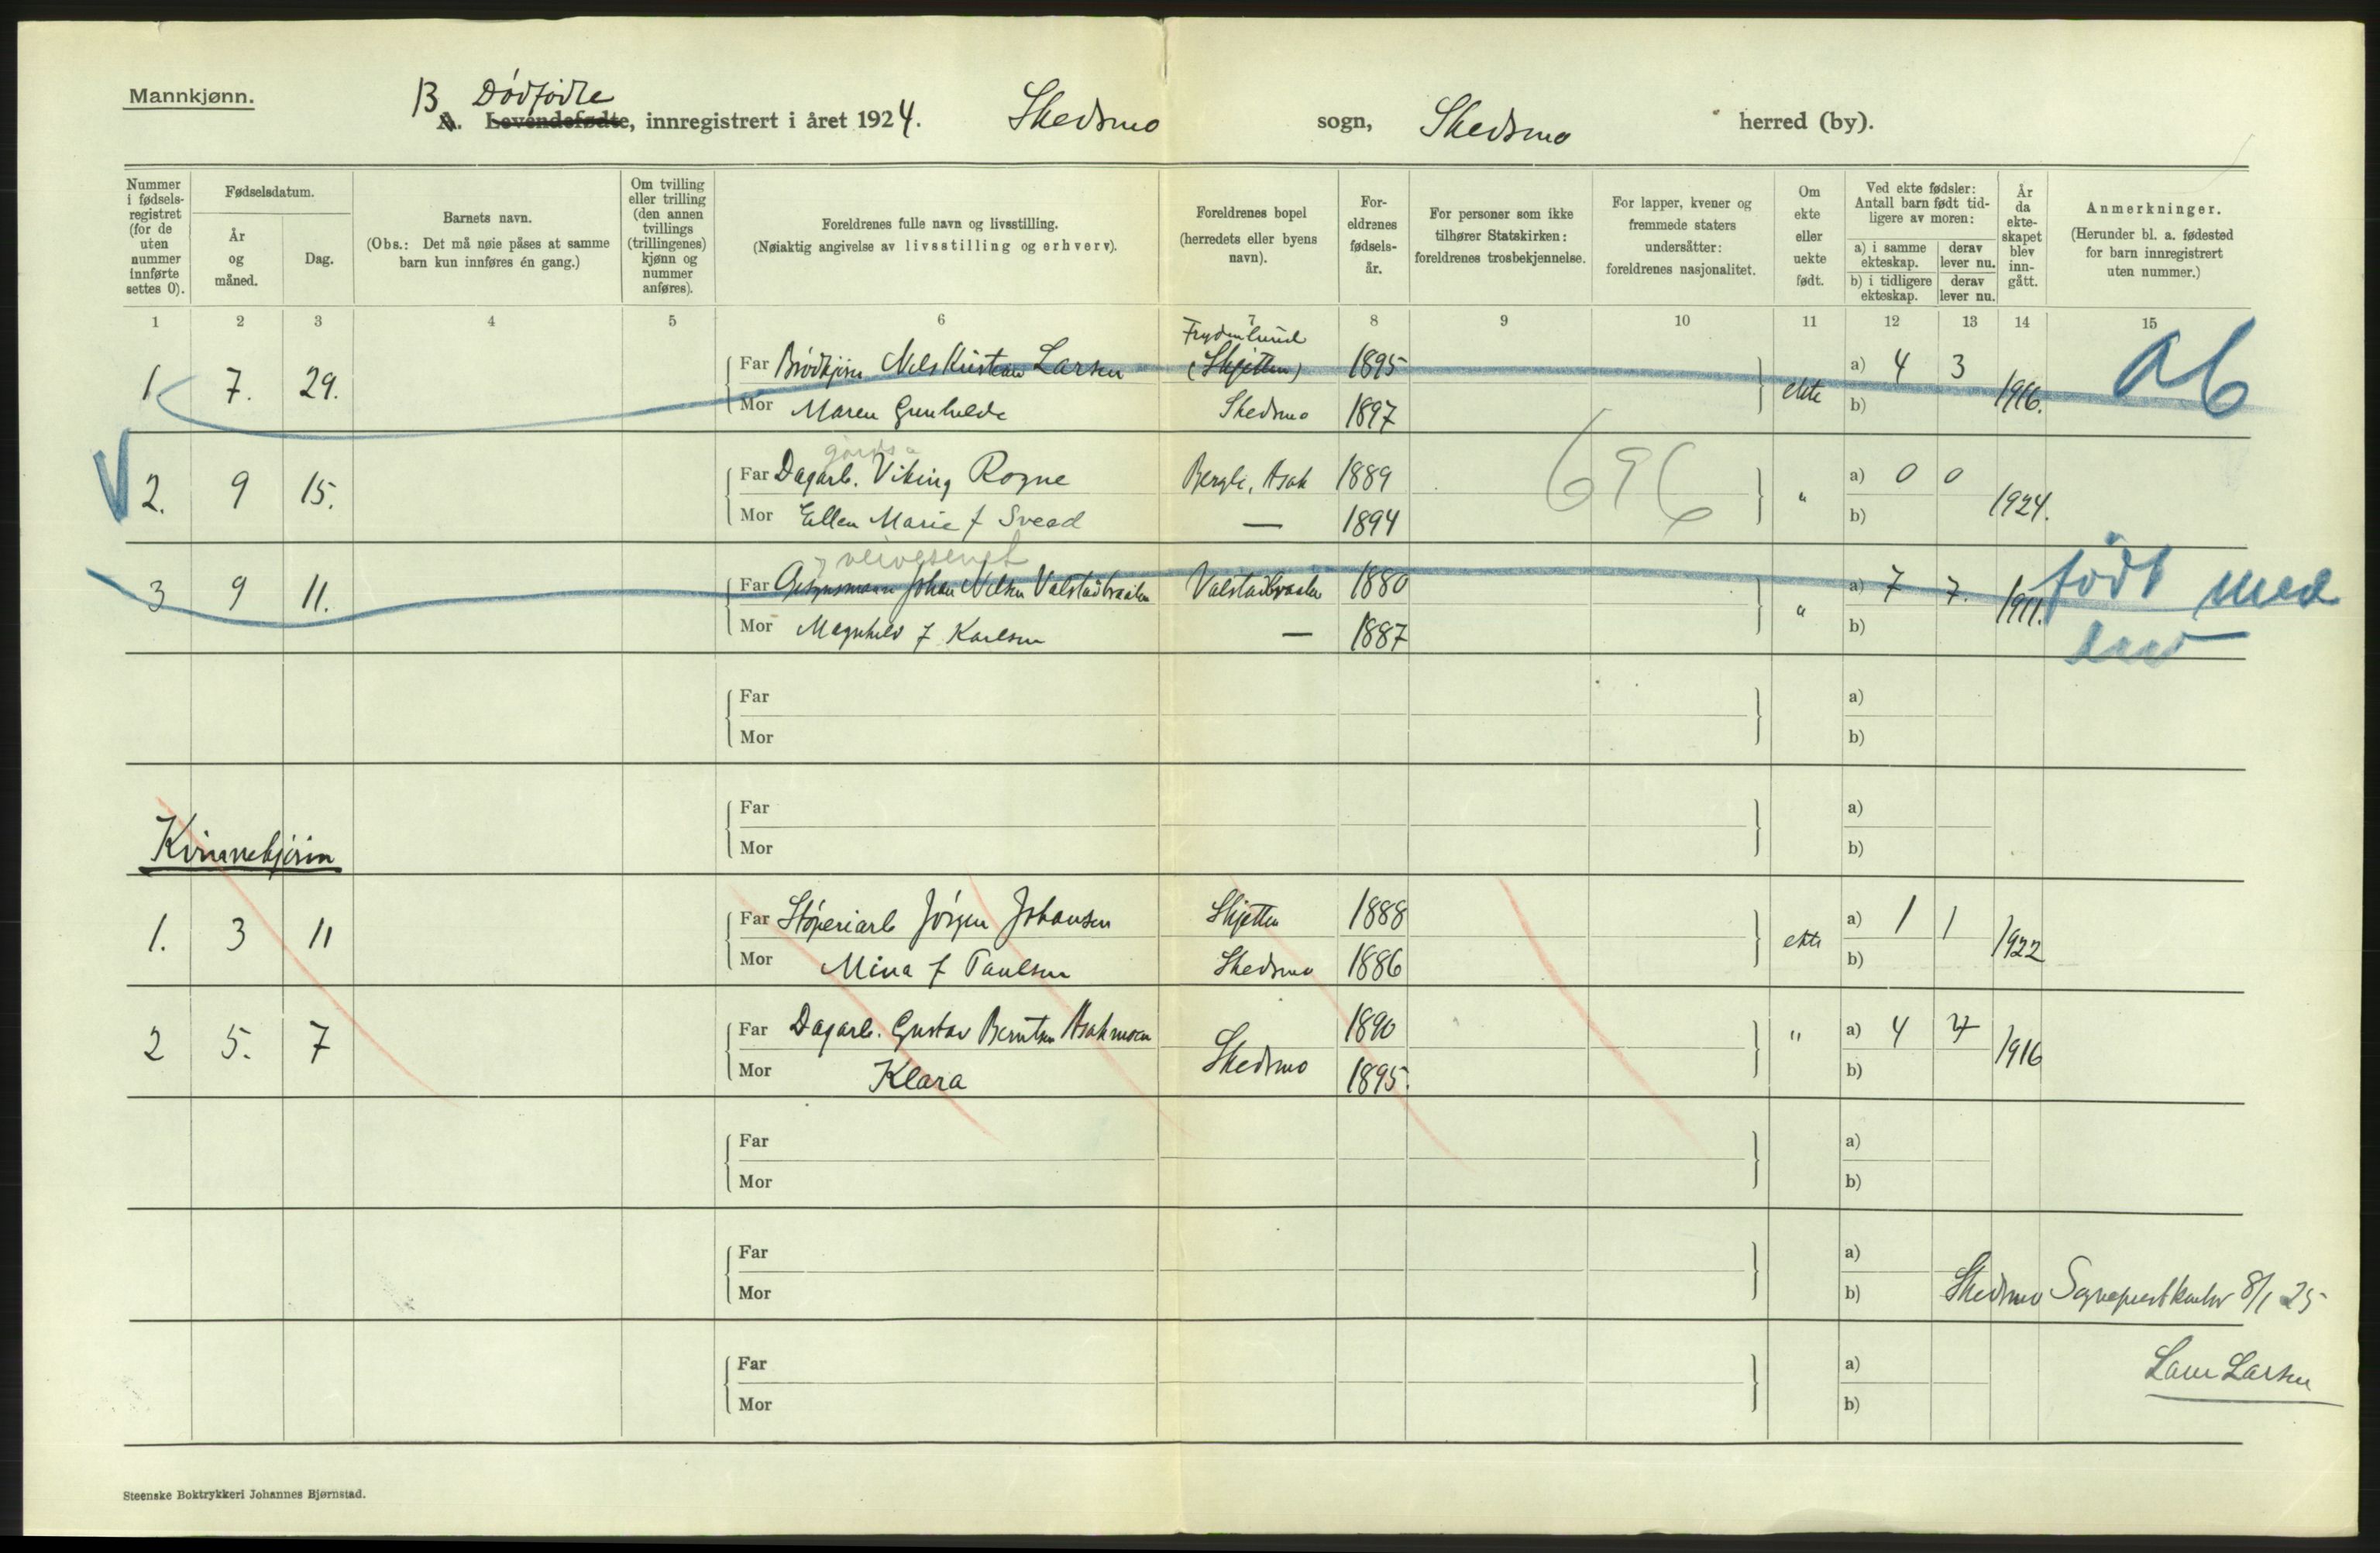 Mannkjønn.
B Dødfødte
A. Levendefødte, innregistrert i året 1924. Skedsmo sogn, Skedsmo herred (by).
Nummer i fødsels-registret (for de uten nummer innførte settes 0).
Fødselsdatum.
År og måned.
Dag.
Barnets navn.
(Obs.: Det må nøie påses at samme barn kun innføres én gang.)
Om tvilling eller trilling (den annen tvillings (trillingenes) kjønn og nummer anføres).
Foreldrenes fulle navn og livsstilling.
(Nøiaktig angivelse av livsstilling og erhverv).
Foreldrenes bopel
(herredets eller byens navn).
For-eldrenes fødsels-år.
For personer som ikke tilhører Statskirken: foreldrenes trosbekjennelse.
For lapper, kvener og fremmede staters undersåtter: foreldrenes nasjonalitet.
Om ekte eller uekte født.
Ved ekte fødsler: Antall barn født tid-ligere av moren:
a) i samme ekteskap.
derav lever nu.
b) i tidligere ekteskap.
derav lever nu.
År da ekte-skapet blev inn-gått.
Anmerkninger.
(Herunder bl. a. fødested for barn innregistrert uten nummer.)
1 2 3 4 5 6 7 8 9 10 11 12 13 14 15
Frydenlund
1 7. 29. Far Brødkjører Nils Kristian Larsen (Skjetten) 1895 ekte a) 4 3 1916. ab
Mor Maren Gunhilde Skedsmo 1897 b)
gårds
2. 9 15. Far Dagarb. Viking Rogne Bergli, Asak 1889 696 " a) 0 0 1924.
Mor Ellen Marie f Svead — 1894 b)
3 9 11. Far Johan Nilsen Valstadbraaten Valstadbraaten 1880 " a) 7 7. 1911. født med
Mor Magnhild f Karlsen — 1887 b)
Far a)
Mor b)
Far a)
Kvinnekjønn
Mor b)
1. 3 11 Far Støperiarb Jørgen Johansen Skjetten 1888 ekte a) 1 1 1922
Mor Mina f Paulsen Skedsmo 1886 b)
2 5. 7 Far Dagarb. Gustav Berntsen Asakmoen Skedsmo 1890 " a) 4 4 1916
Mor Klara 1895. b)
Far a)
Mor b)
Far a)
Mor b) Skedsmo Sogneprestkontor 8/1 25
Far a)
Mor b) Larsen
Steenske Boktrykkeri Johannes Bjørnstad.